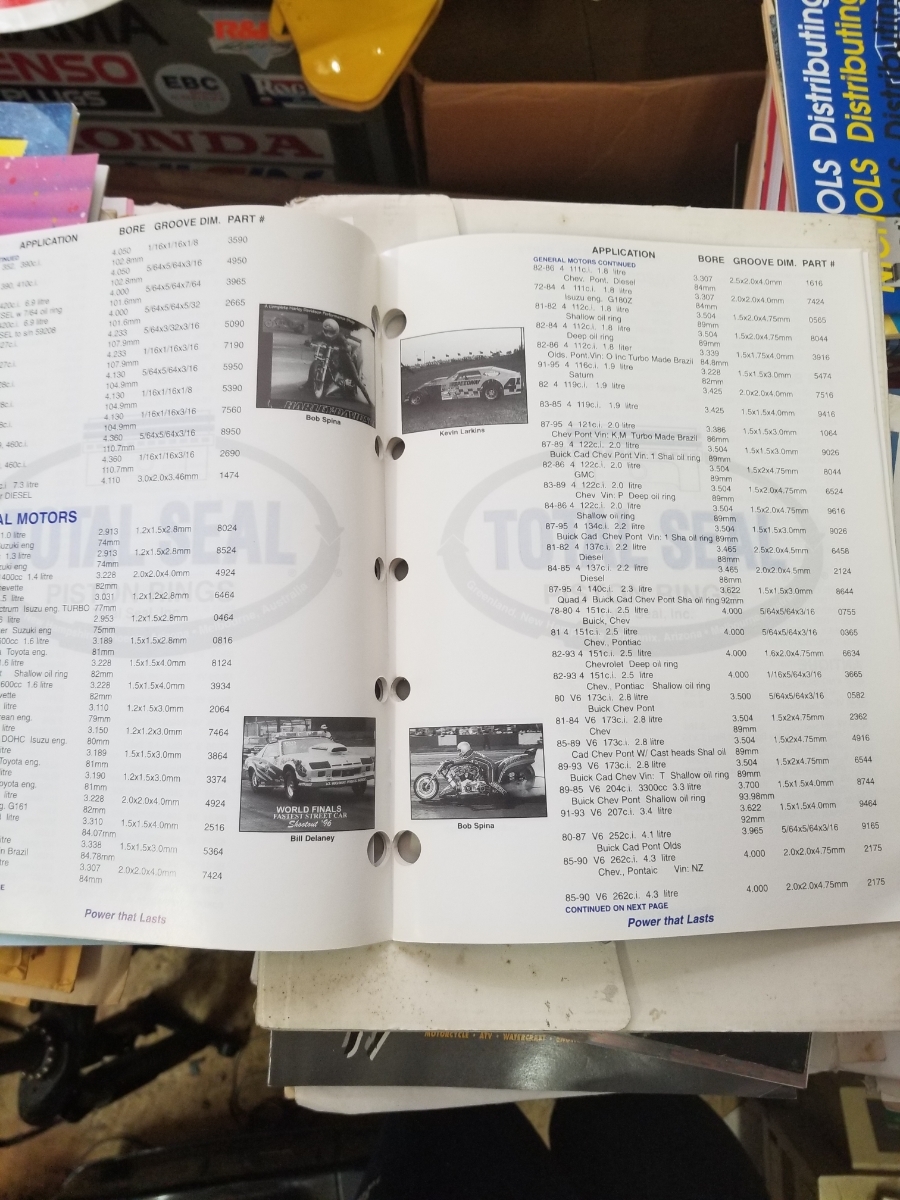 R&D
ENSO
PLUGS
EBC
ONDA
OLS Distributing
OLS Distributing
APPLICATION BORE GROOVE DIM. PART #
350, 390c.i. 4.050 1/16x1/16x1/8 3590
102.8mm
390, 410c.i. 4.050 5/64x5/64x3/16 4950
102.8mm
4.000 5/64x5/64x7/64 3965
420c.i. 6.9 litre 101.6mm
SEL w 7/64 oil ring 4.000 5/64x5/64x5/32 2665
420c.i. 6.9 litre 101.6mm
4.233 5/64x3/32x3/16 5090
107.9mm
4.233 1/16x1/16x3/16 7190
107.9mm
4.130 5/64x5/64x3/16 5950
104.9mm
4.130 1/16x1/16x1/8 5390
104.9mm
4.130 1/16x1/16x3/16 7560
104.9mm
460c.i. 4.360 5/64x5/64x3/16 8950
110.7mm
460c.i. 4.360 1/16x1/16x3/16 2690
110.7mm
7.3 litre 4.110 3.0x2.0x3.46mm 1474
DIESEL
Bob Spina
AL MOTORS
1.0 litre 2.913 1.2x1.5x2.8mm 8024
uzuki eng 74mm
1.3 litre 2.913 1.2x1.5x2.8mm 8524
zuki eng 74mm
1400cc 1.4 litre 3.228 2.0x2.0x4.0mm 4924
evette 82mm
.5 litre 3.031 1.2x1.2x2.8mm 6464
ctrum Isuzu eng. TURBO 77mm
litre 2.953 1.2x1.5x2.8mm 0464
er Suzuki eng 75mm
600cc 1.6 litre 3.189 1.5x1.5x2.8mm 0816
Toyota eng. 81mm
1.6 litre 3.228 1.5x1.5x4.0mm 8124
Shallow oil ring 82mm
600cc 1.6 litre 3.228 1.5x1.5x4.0mm 3934
vette 82mm
litre 3.110 1.2x1.5x3.0mm 2064
rean eng. 79mm
litre 3.150 1.2x1.2x3.0mm 7464
DOHC Isuzu eng. 80mm
litre 3.189 1.5x1.5x3.0mm 3864
Toyota eng. 81mm
litre 3.190 1.2x1.5x3.0mm 3374
oyota eng. 81mm
litre 3.228 2.0x2.0x4.0mm 4924
g. G161 82mm
litre 3.310 1.5x1.5x4.0mm 2516
84.07mm
litre 3.338 1.5x1.5x3.0mm 5364
n Brazil 84.78mm
tre 3.307 2.0x2.0x4.0mm 7424
84mm
WORLD FINALS
FASTEST STREET CAR
Shootout '96
Bill Delaney
Power that Lasts
APPLICATION BORE GROOVE DIM. PART #
GENERAL MOTORS CONTINUED
82-86 4 111c.i. 1.8 litre 3.307 2.5x2.0x4.0mm 1616
Chev. Pont. Diesel 84mm
72-84 4 111c.i. 1.8 litre 3.307 2.0x2.0x4.0mm 7424
Isuzu eng. G180Z 84mm
81-82 4 112c.i. 1.8 litre 3.504 1.5x2.0x4.75mm 0565
Shallow oil ring 89mm
82-84 4 112c.i. 1.8 litre 3.504 1.5x2.0x4.75mm 8044
Deep oil ring 89mm
82-86 4 112c.i. 1.8 liter 3.339 1.5x1.75x4.0mm 3916
Olds. Pont.Vin: O Inc Turbo Made Brazil 84.8mm
91-95 4 116c.i. 1.9 litre 3.228 1.5x1.5x3.0mm 5474
Saturn 82mm
82 4 119c.i. 1.9 litre 3.425 2.0x2.0x4.0mm 7516
83-85 4 119c.i. 1.9 litre 3.425 1.5x1.5x4.0mm 9416
87-95 4 121c.i. 2.0 litre 3.386 1.5x1.5x3.0mm 1064
Chev Pont Vin: K,M Turbo Made Brazil 86mm
87-89 4 122c.i. 2.0 litre 3.504 1.5x1.5x3.0mm 9026
Buick Cad Chev Pont Vin: 1 Shal oil ring 89mm
82-86 4 122c.i. 2.0 litre 3.504 1.5x2x4.75mm 8044
GMC 89mm
83-89 4 122c.i. 2.0 litre 3.504 1.5x2.0x4.75mm 6524
Chev Vin: P Deep oil ring 89mm
84-86 4 122c.i. 2.0 litre 3.504 1.5x2.0x4.75mm 9616
Shallow oil ring 89mm
87-95 4 134c.i. 2.2 litre 3.504 1.5x1.5x3.0mm 9026
Buick Cad Chev Pont Vin: 1 Sha oil ring 89mm
81-82 4 137c.i. 2.2 litre 3.465 2.5x2.0x4.5mm 6456
Diesel 88mm
84-85 4 137c.i. 2.2 litre 3.465 2.0x2.0x4.5mm 2124
Diesel 88mm
87-95 4 140c.i. 2.3 litre 3.622 1.5x1.5x3.0mm 8644
Quad 4 Buick Cad Chev Pont Sha oil ring 92mm
78-80 4 151c.i. 2.5 litre 4.000 5/64x5/64x3/16 0755
Buick, Chev
81 4 151c.i. 2.5 litre 4.000 5/64x5/64x3/16 0365
Chev., Pontiac
82-93 4 151c.i. 2.5 litre 4.000 1.6x2.0x4.75mm 6634
Chevrolet Deep oil ring
82-93 4 151c.i. 2.5 litre 4.000 1/16x5/64x3/16 3665
Chev., Pontiac Shallow oil ring
80 V6 173c.i. 2.8 litre 3.500 5/64x5/64x3/16 0582
Buick Chev Pont
81-84 V6 173c.i. 2.8 litre 3.504 1.5x2x4.75mm 2362
Chev 89mm
85-89 V6 173c.i. 2.8 litre 3.504 1.5x2x4.75mm 4916
Cad Chev Pont W/ Cast heads Shal oil 89mm
89-93 V6 173c.i. 2.8 litre 3.504 1.5x2x4.75mm 6544
Buick Cad Chev Vin: T Shallow oil ring 89mm
89-85 V6 204c.i. 3300cc 3.3 litre 3.700 1.5x1.5x4.0mm 8744
Buick Chev Pont Shallow oil ring 93.98mm
91-93 V6 207c.i. 3.4 litre 3.622 1.5x1.5x4.0mm 9464
92mm
80-87 V6 252c.i. 4.1 litre 3.965 5/64x5/64x3/16 9165
Buick Cad Pont Olds
85-90 V6 262c.i. 4.3 litre 4.000 2.0x2.0x4.75mm 2175
Chev., Pontaic Vin: NZ
85-90 V6 262c.i. 4.3 litre 4.000 2.0x2.0x4.75mm 2175
CONTINUED ON NEXT PAGE
Kevin Larkins
Bob Spina
Power that Lasts
TOTAL SEAL
MOTORCYCLE • ATV • WATERCRAFT